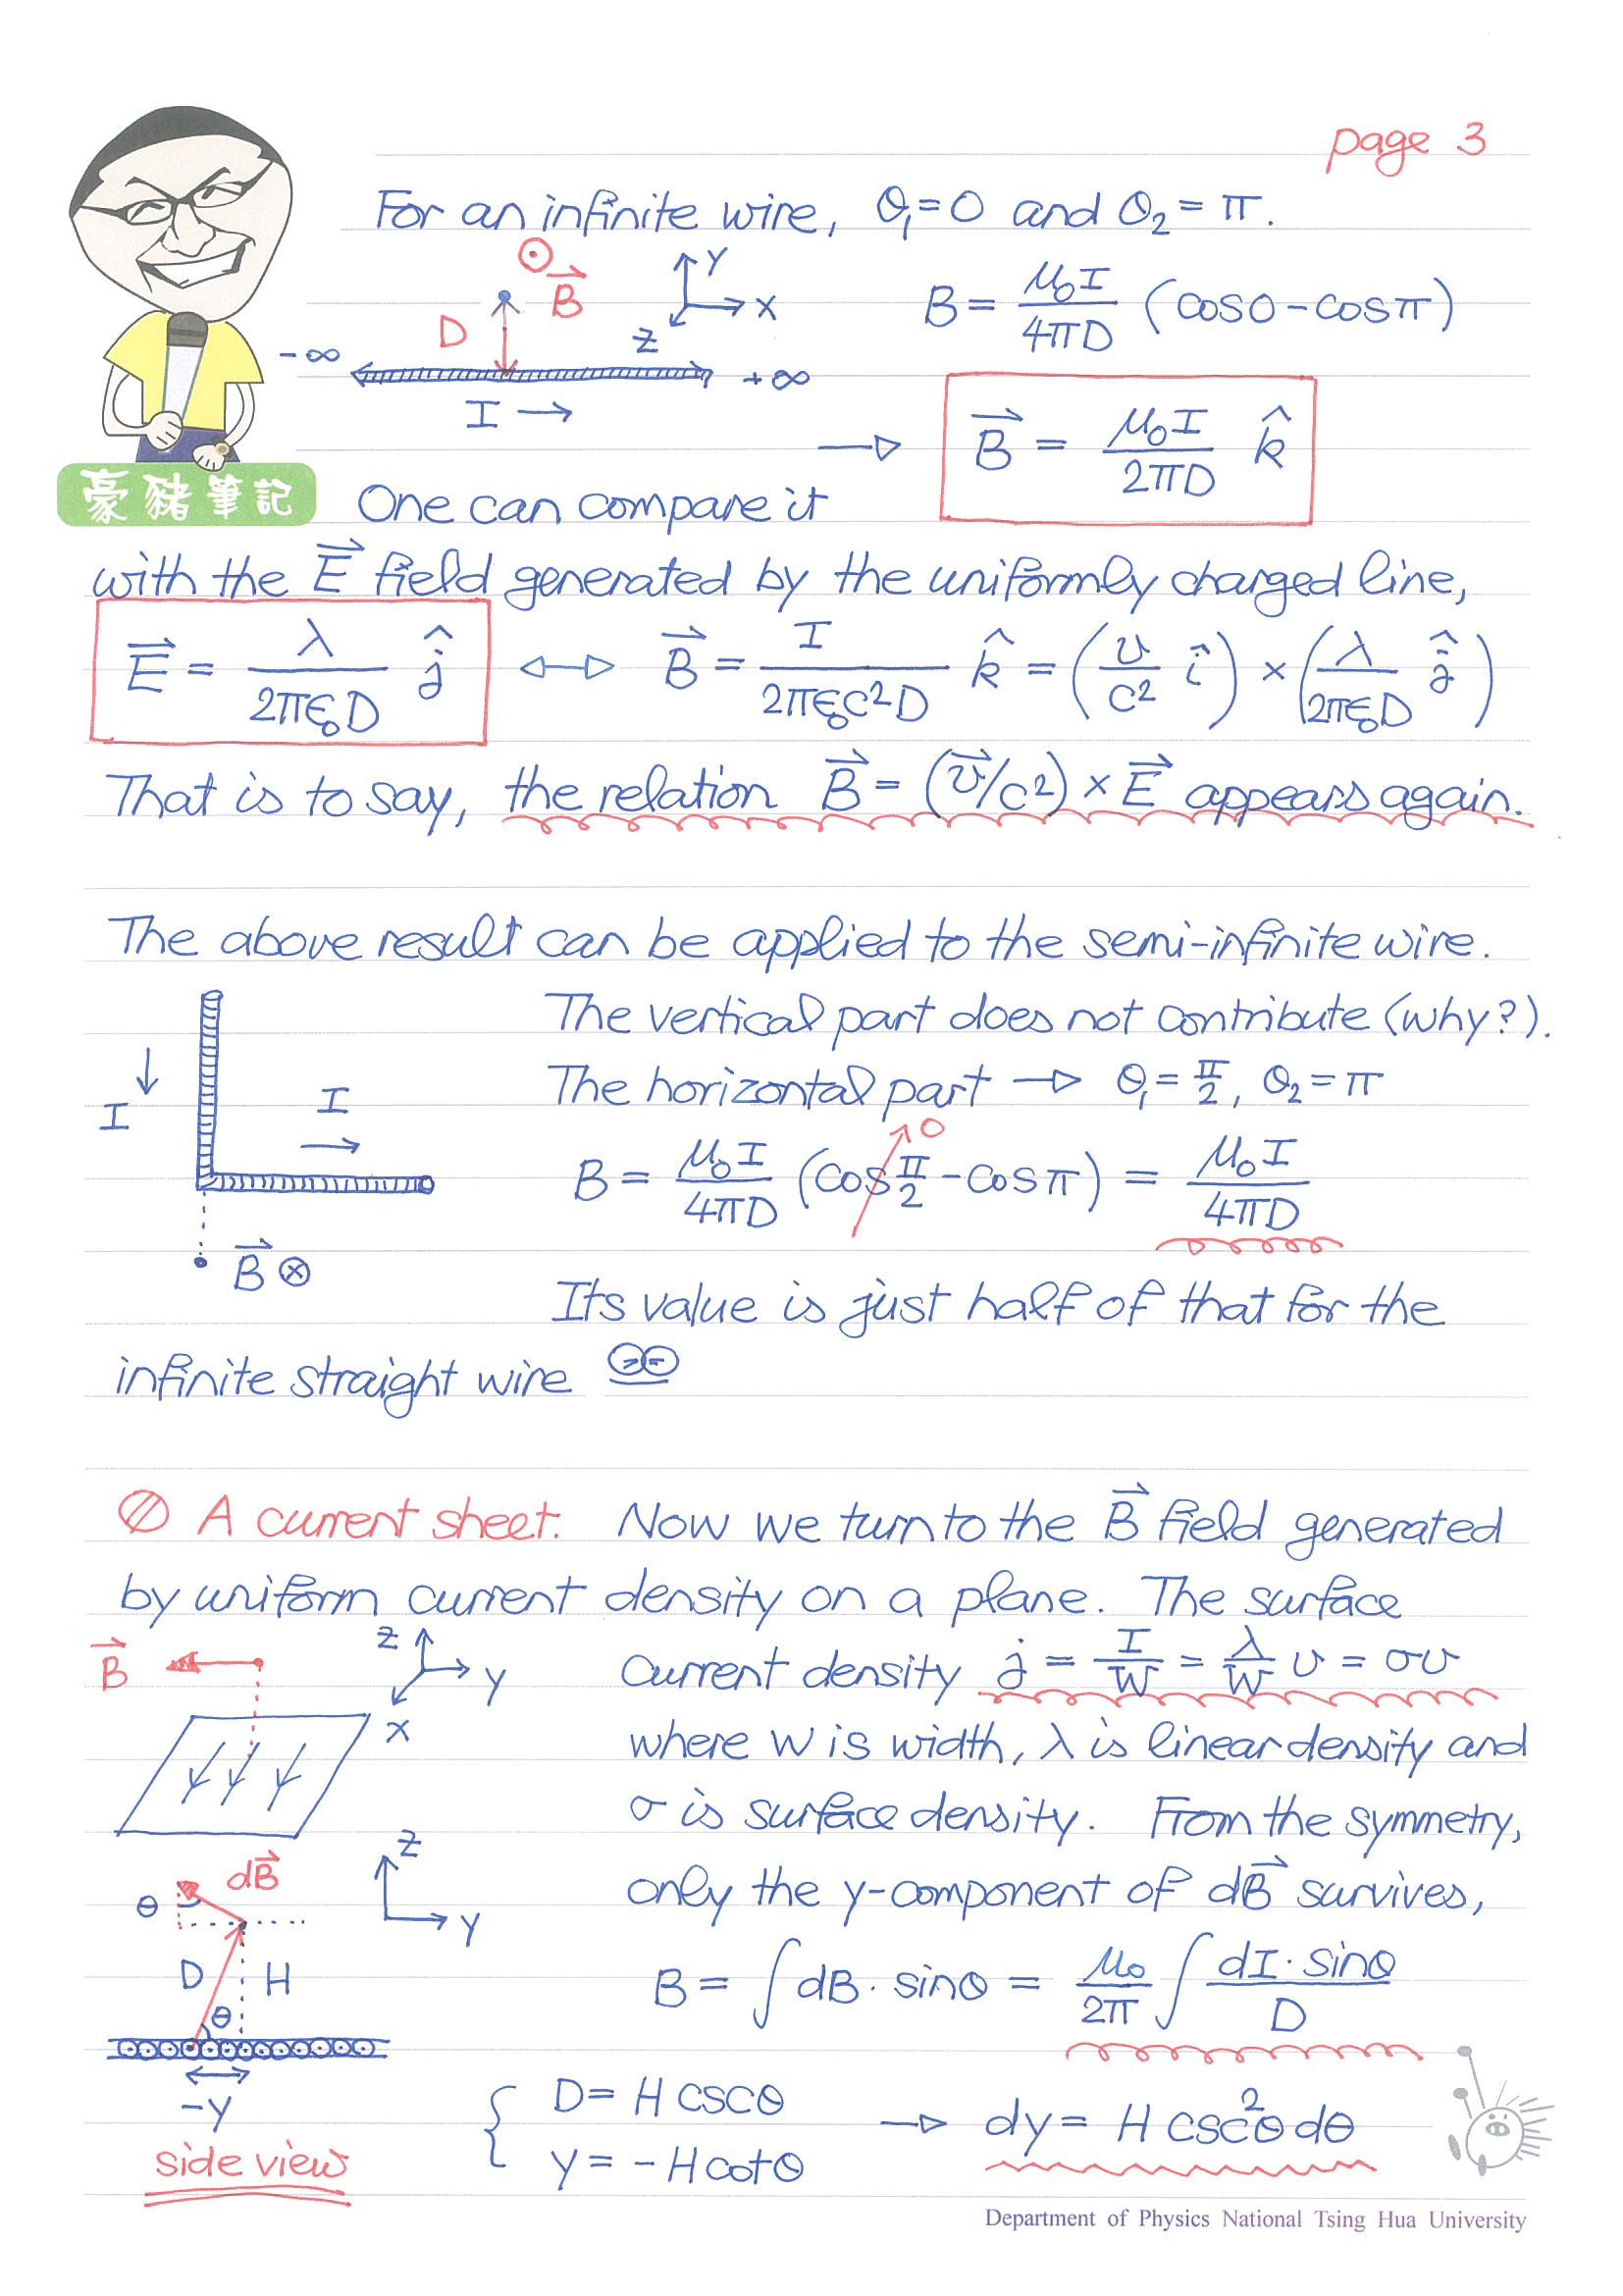 page 3
For an infinite wire, θ₁=0 and θ₂=π.
⊙ B⃗
D
Y
X
Z
B = μ₀I/4πD (cos0-cosπ)
-∞
+∞
I →
→ B⃗ = μ₀I/2πD k̂
豪豬筆記
One can compare it
with the E⃗ field generated by the uniformly charged line,
E⃗ = λ/2πε₀D ĵ ↔ B⃗ = I/2πε₀c²D k̂ = (v/c² î) × (λ/2πε₀D ĵ)
That is to say, the relation B⃗ = (v⃗/c²) × E⃗ appears again.
The above result can be applied to the semi-infinite wire.
The vertical part does not contribute (why?).
The horizontal part → θ₁=π/2, θ₂=π
I ↓
I →
B = μ₀I/4πD (cosπ/2 - cosπ) = μ₀I/4πD
0
B⃗ ⊗
Its value is just half of that for the
infinite straight wire
A current sheet. Now we turn to the B⃗ field generated
by uniform current density on a plane. The surface
B⃗
Z
Y
X
current density j = I/W = λ/W v = σv
where W is width, λ is linear density and
σ is surface density. From the symmetry,
only the y-component of dB⃗ survives,
dB⃗
θ
Z
Y
D
H
θ
B = ∫dB·sinθ = μ₀/2π ∫ dI·sinθ/D
-y
side view
{ D = H cscθ
y = -H cotθ
→ dy = H csc²θ dθ
Department of Physics National Tsing Hua University